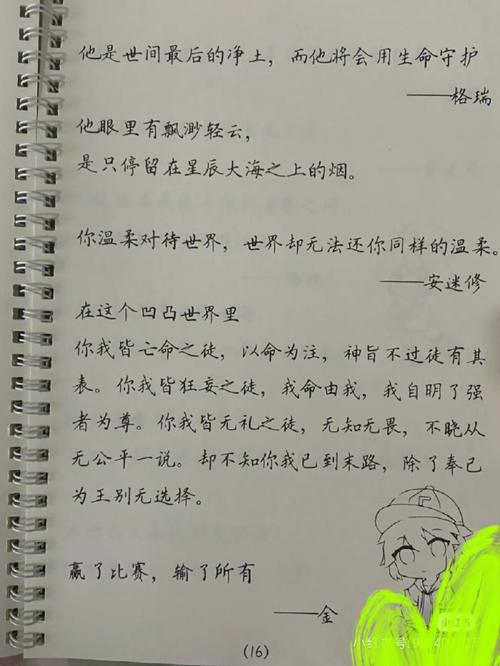 他是世间最后的净土，而他将会用生命守护
——格瑞
他眼里有飘渺轻云，
是只停留在星辰大海之上的烟。
你温柔对待世界，世界却无法还你同样的温柔。
——安迷修
在这个凹凸世界里
你我皆亡命之徒，以命为注，神旨不过徒有其
表。你我皆狂妄之徒，我命由我，我自明了强
者为尊。你我皆无礼之徒，无知无畏，不晓从
无公平一说。却不知你我已到末路，除了奉己
为王别无选择。
赢了比赛，输了所有
——金
(16)